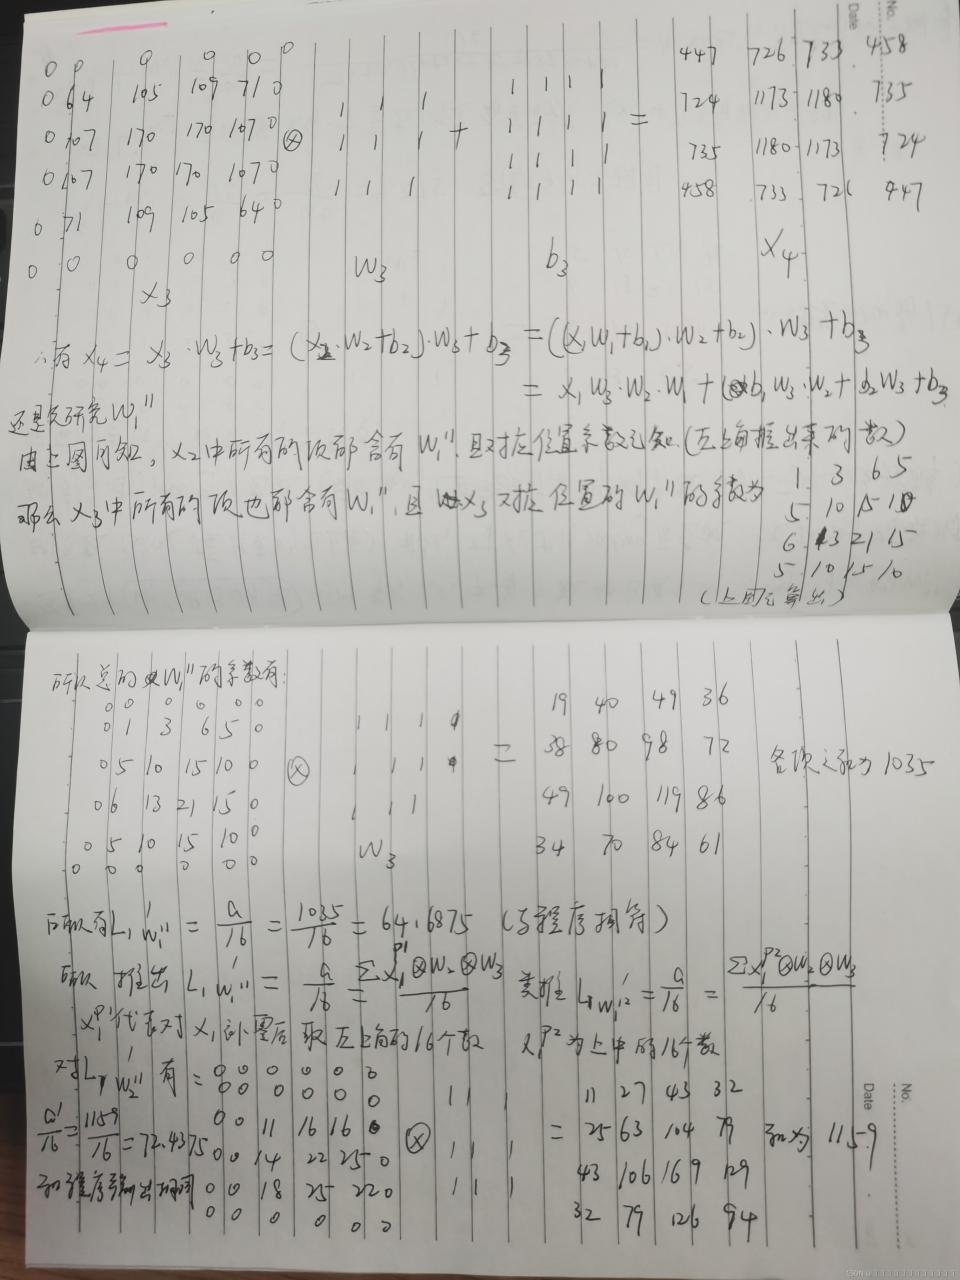 No.
Date
0 0 0 0 0 0
0 64 105 109 71 0
0 107 170 170 107 0
0 107 170 170 107 0
0 71 109 105 64 0
0 0 0 0 0 0
X₃
⊗
1 1 1
1 1 1
1 1 1
W₃
+
1 1 1 1
1 1 1 1
1 1 1 1
1 1 1 1
b₃
=
447 726 733 458
724 1173 1180 735
735 1180 1173 724
458 733 726 447
X₄
∴有 X₄ = X₃·W₃+b₃ = (X₂·W₂+b₂)·W₃+b₃ = ((X₁W₁+b₁)·W₂+b₂)·W₃+b₃
= X₁W₃·W₂·W₁ + b₁W₃·W₂+b₂W₃+b₃
还是先研究W₁¹¹
由上图可知，X₂中所有的项都含有W₁¹¹.且对应位置系数已知.(左上角推出来的数)
那么X₃中所有的项也都含有W₁¹¹,且X₃对应位置的W₁¹¹的系数为
1 3 6 5
5 10 15 10
6 13 21 15
5 10 15 10
(上图已算出)
所以总的W₁¹¹的系数有:
0 0 0 0 0 0
0 1 3 6 5 0
0 5 10 15 10 0
0 6 13 21 15 0
0 5 10 15 10 0
0 0 0 0 0 0
⊗
1 1 1
1 1 1
1 1 1
W₃
=
19 40 49 36
38 80 98 72
49 100 119 86
34 70 84 61
各项之和为1035
所以有L₁'W₁¹¹ = a/16 = 1035/16 = 64.6875 (与程序相符)
所以推出L₁'W₁¹¹ = a/16 = ΣX₁ᴾ¹⊗W₂⊗W₃/16 类推L₁'W₁¹² = a/16 = ΣX₁ᴾ²⊗W₂⊗W₃/16
X₁ᴾ¹代表对X₁补圈后取左上角的16个数 X₁ᴾ²为上中的16个数
对L₁'W₂¹¹有=
0 0 0 0 0 0
0 0 0 0 0 0
0 0 11 16 16 0
0 0 14 22 25 0
0 0 18 25 22 0
0 0 0 0 0 0
⊗
1 1 1
1 1 1
1 1 1
=
11 27 43 32
25 63 104 79
43 106 169 129
32 79 126 94
和为1159
a'/16 = 1159/16 = 72.4375
和程序输出相同
No.
Date